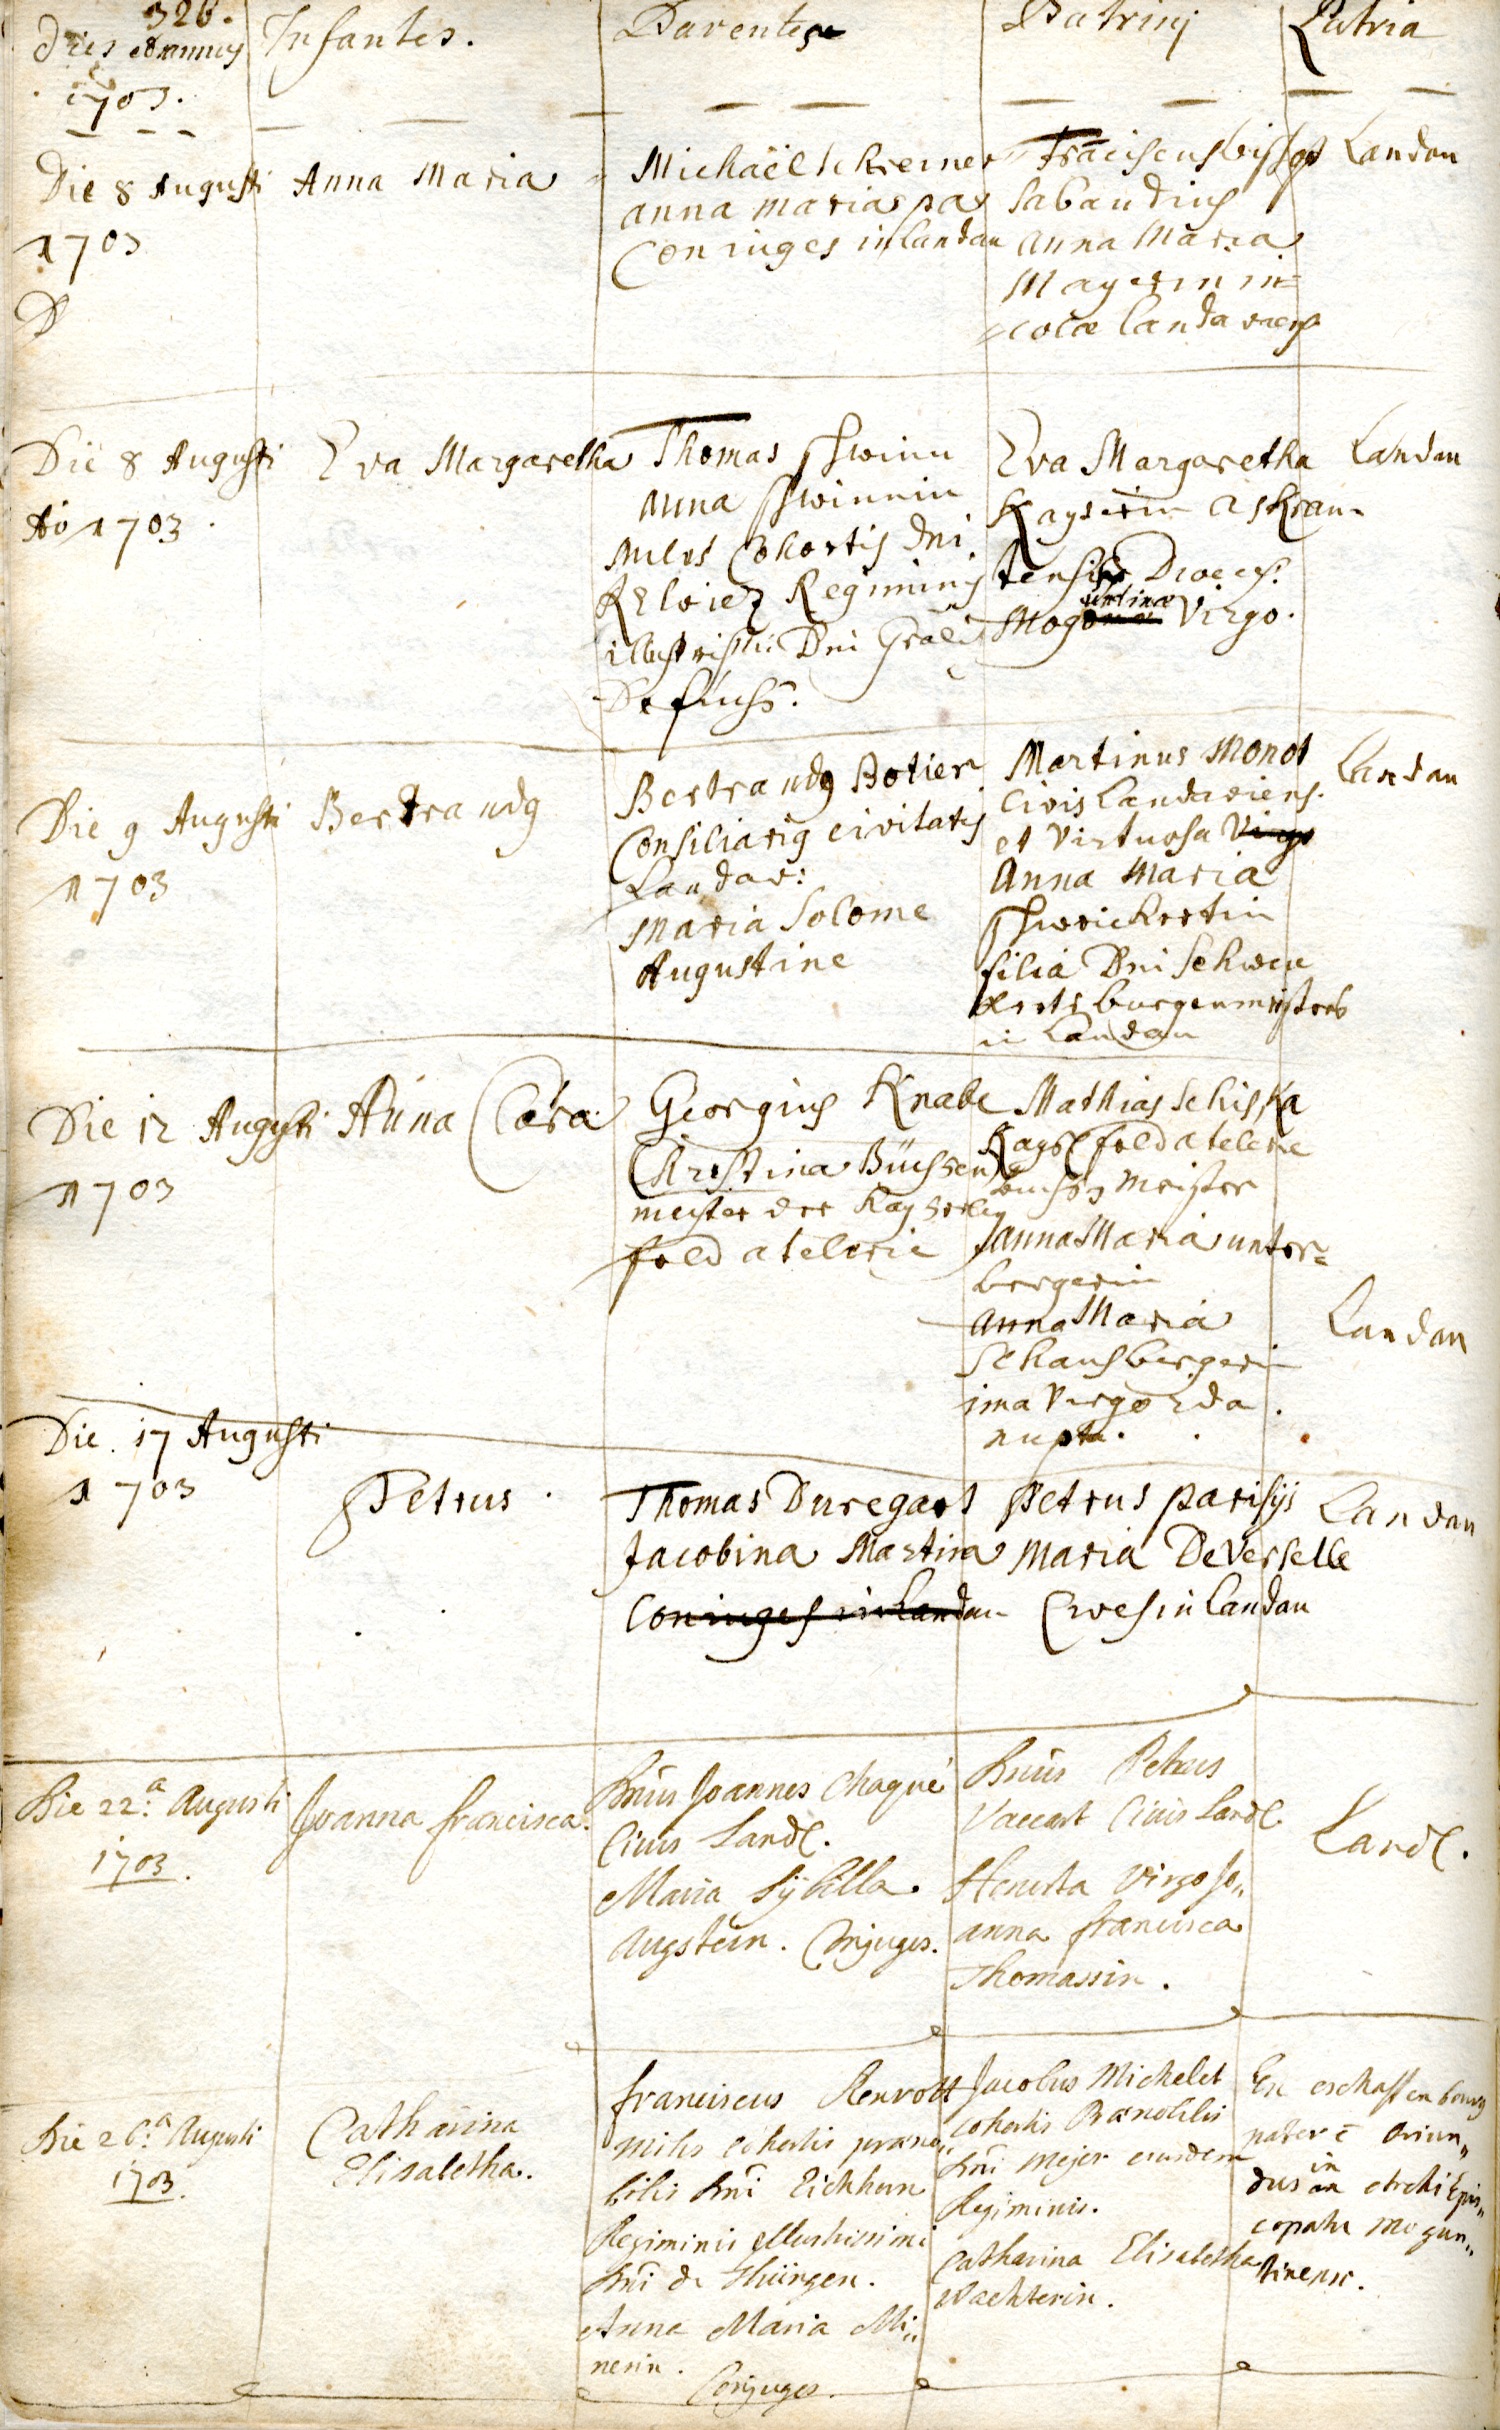 326.
Dies et annus Infantes. Parentes Patrinj Patria
1703.
Die 8 Augusti
1703
D
Anna Maria
Michaël schreiner
anna maria
Coniuges in Landau
Sabaudius
Anna Maria
Mayerin in=
=colæ Landaviens
Landau
Die 8 Augusti
Aõ 1703.
Eva Margaretha
Thomas schwinn
Anna schwinnin
Miles Cohortis Dni
Regiminis
illustrissi: Dni Grãlis
De
Eva Margaretha
Kayserin
tensis Dioeces:
Mogontinæ Virgo.
Landau
Die 9 Augusti
1703
Bertrandg
Bertrandg Botier
Consiliarig civitatis
Landav:
Maria Solome
Augustine
Martinus Monot
Civis Landaviens.
et virtuosa Virgo
Anna Maria
schweickertin
filia Dni Schweic
kerts burgenmeisters
in Landau
Landau
Die 12 Augusti
1703
Anna Clara
Georgius Knabe
Christina Büchsen
meister der Kayserlig
feld atelerie
Mathias Schiska
Kaysl feld atelerie
meister
Anna Maria unter=
bergerin
Anna Maria
Schausbergerin
ima Virgo 2da
nupta.
Landau
Die 17 Augusti
1703
Petrus.
Thomas Duregart
Jacobina Martina
Coniuges in Landau
Petrus parisijs
Maria DeVerselle
Cives in Landau
Landau
Die 22.a Augusti
1703.
Joanna francisca.
Dnus Joannes Chaqué
Civis Landl.
Maria Sÿbilla
Augstein. Conjuges.
Dnus Petrus
Vaccart Civis Landl.
Honesta Virgo Jo„
anna francisca
Thomassin.
Landl.
Die 26.a Augusti
1703.
Catharina
Elisabetha.
franciscus Renrott
Miles cohortis præno„
bilis Dni Eichhorn
Regiminis Illustrissimi
Dni de Thüngen.
Anna Maria Mi„
nerin.
Conjuges.
Jacobus Michelet
cohortis Prænobilis
Dni Mejer eiusdem
Regiminis.
Catharina Elisabetha
Wachterin.
Ex eschaffenbourg
pater ẽ oriun„
dus in archiEpis„
copatu mogun„
tinensi.